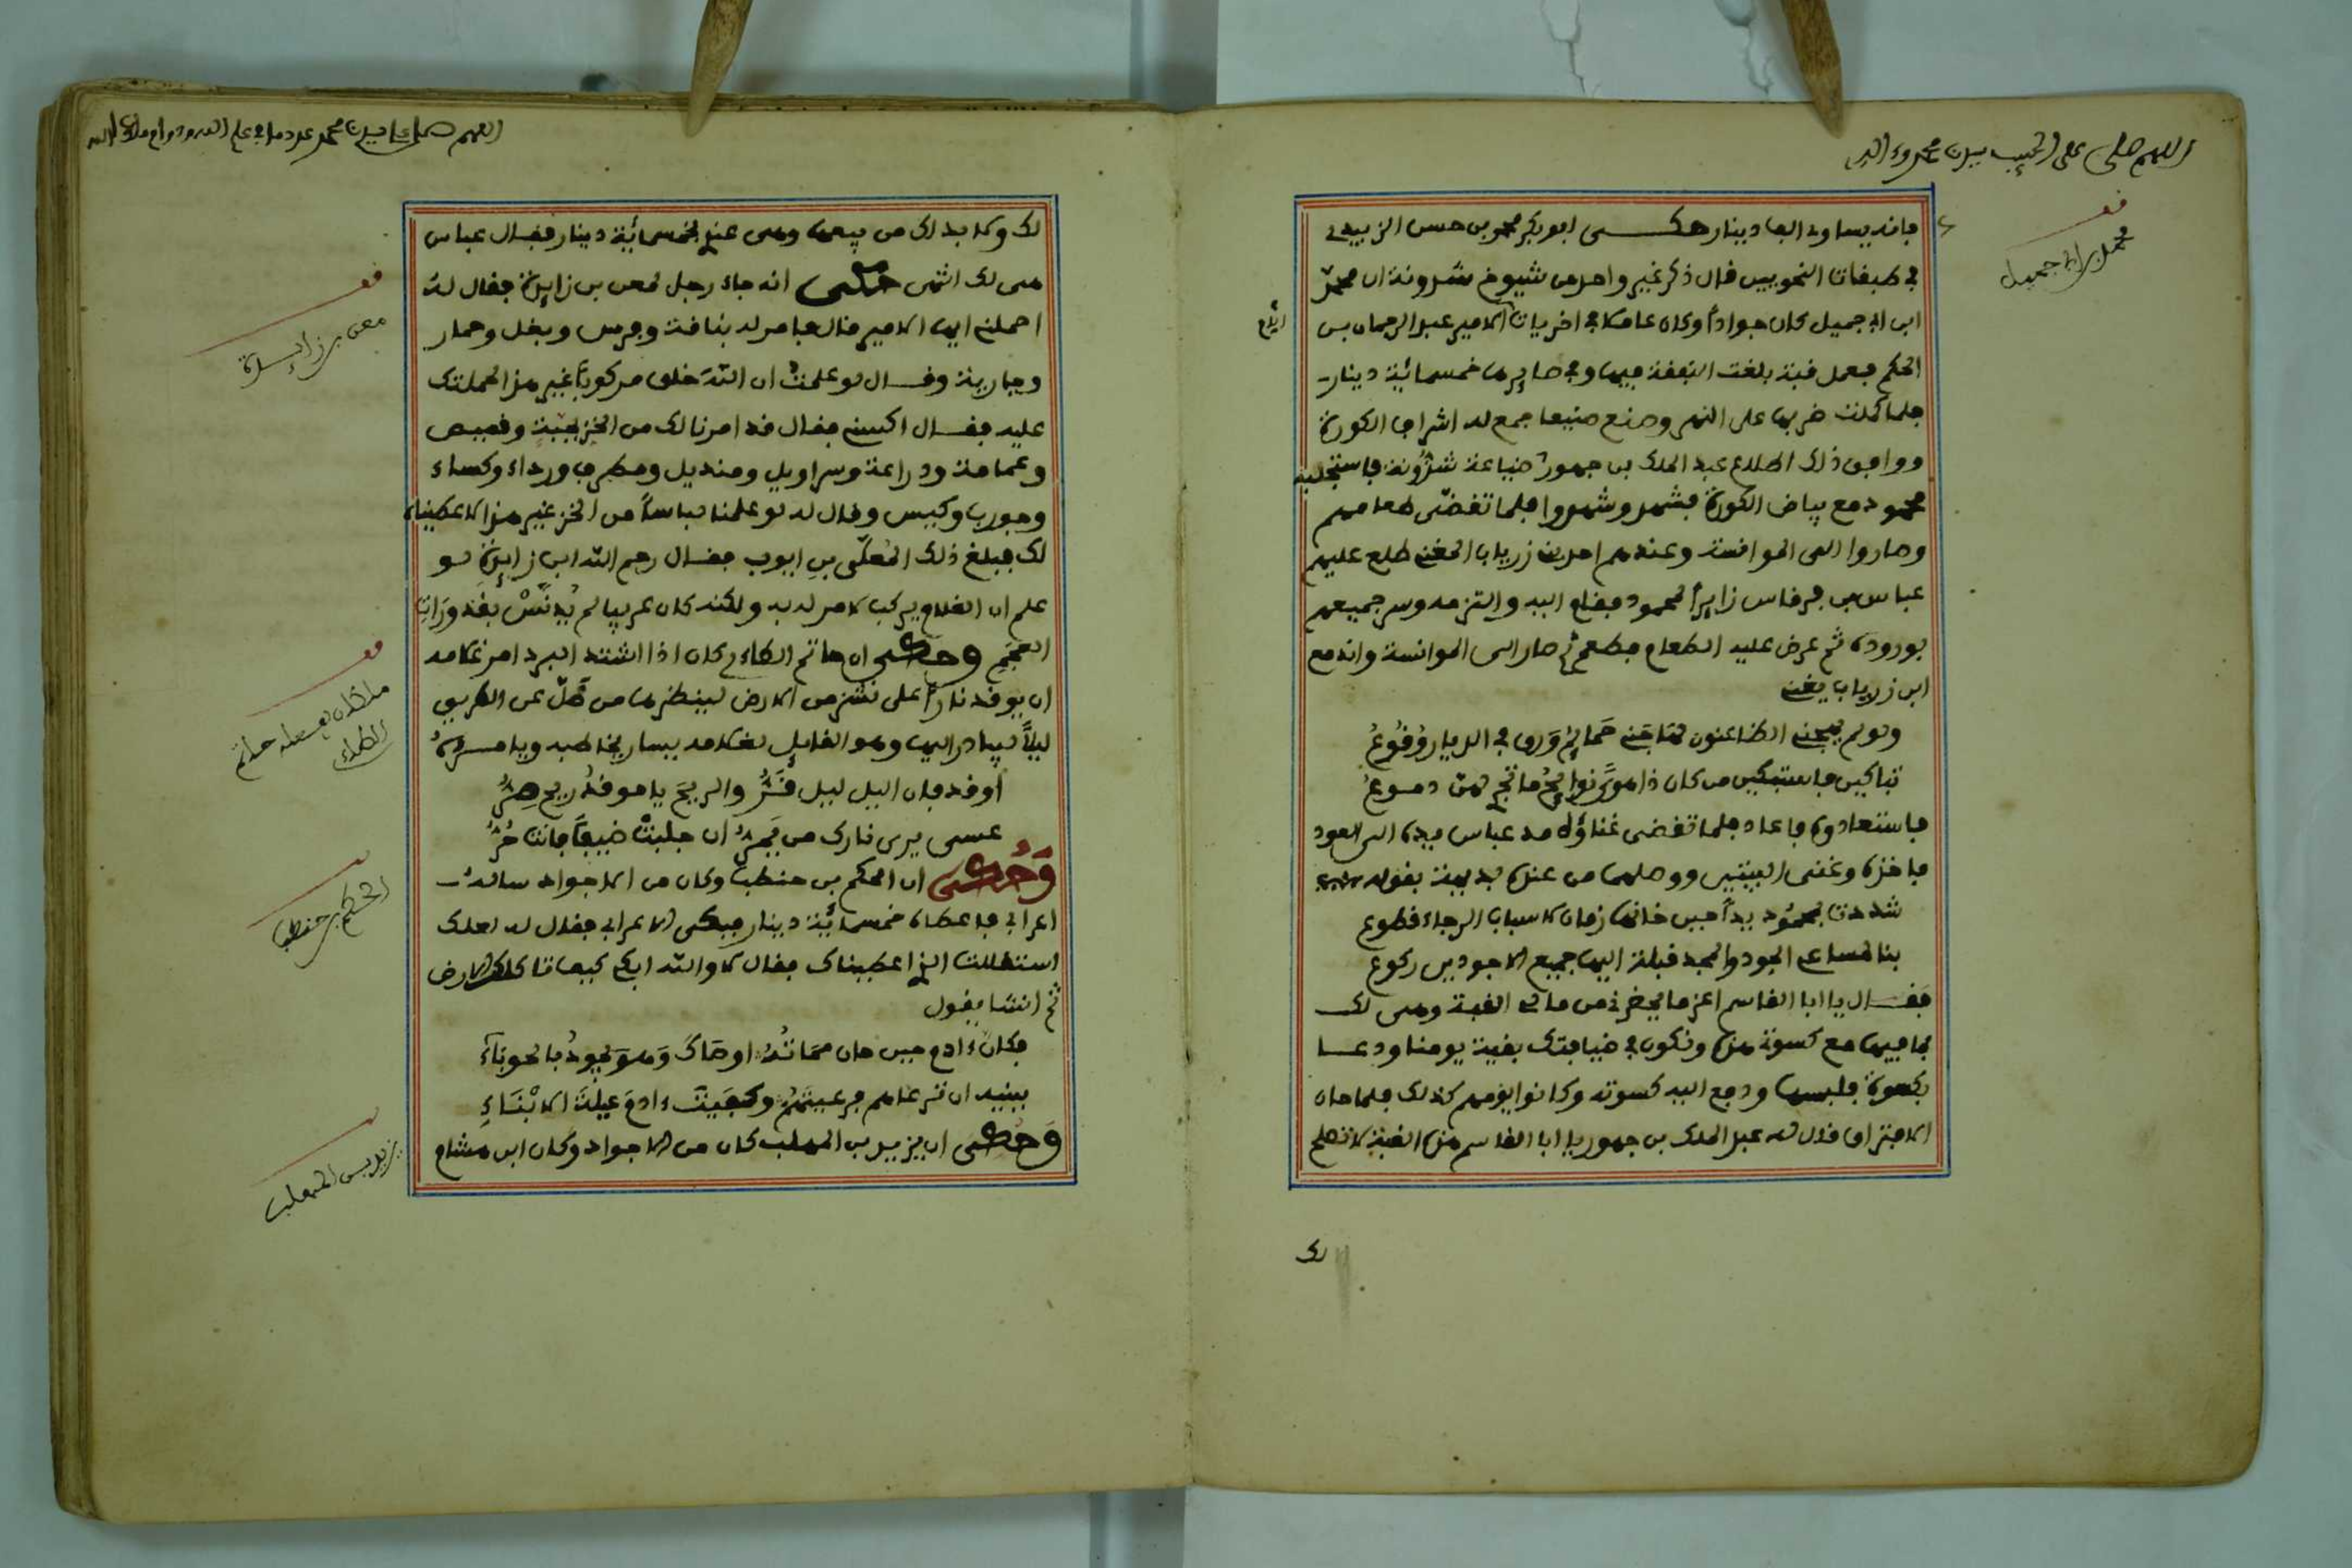 اللهم صل على الحبيب سيدنا محمد وءاله
فإنه يساوي ألفا دينار حكى أبو بكر محمد بن حسن الزبيدي
في طبقات النحويين قال ذكر غير واحد من شيوخ شذونة ان محمد
ابن ابي جميل كان جوادا وكان عاملا في اخريات الامير عبد الرحمان بن
أيام
الحكم فعمل قبة بلغت النفقة فيها وفي صايرها خمسمائية دينار
فلما كملت ضربها على النهر وصنع صنيعا جمع له اشراف الكورة
ووافق ذلك اطلاع عبد الملك بن جهور ضياعة شذونة فاستجلبه
محمود مع بياض الكورة فشهد وشهدوا فلما تقضى طعامهم
وصاروا الى الموانسة وعندهم احد بن زرياب المغني طلع عليهم
عباس بن فرفاس زايرا لمحمود فقام اليه والتزمه وسر جميعهم
بوروده ثم عرض عليه الطعام فطعم ثم صار الى الموانسة واندفع
ابن زرياب يغني
ولو لم يهجني الظاعنون لهاجني حمايم ورق في الديار وقوع
تباكين فاستبكين من كان ذا هوى نوايح ما تجري لهن دموع
فاستعادوه فاعاد فلما تقضى غناؤه مد عباس يده الى العود
فاخذه وغنى البيتين ووصلهما من عنده بديهة بقوله
شددت بمحمود يدا حين خانها زمان لاسباب الرجاء قطوع
بنا لمساعي الجود والمجد قبلة اليها جميع الاجودين ركوع
فقال يا ابا القاسم اعز ما يحضرني من مالي القبة وهي لك
بما فيها مع كسوتي هذه ونكون في ضيافتك بقية يومنا ودعا
بكسوة فلبسها ودفع اليه كسوته وكانوا يومهم كذلك فلما حان
الافتراق قال له عبد الملك بن جهور يا ابا القاسم هذه القبة لا تصلح
لك
محمد بن ابي جميل
اللهم صل على سيدنا محمد عدد ما في علم الله
لك ولا بد لك من بيعها وهي عندي بخمسمائية دينار فقال عباس
هي لك اشتر حكى انه جاء رجل لمعن بن زايدة فقال له
احملني ايها الامير قال فامر له بناقة وفرس وبغل وحمار
وجارية وقال لو علمت ان الله خلق مركوبا غير هذا لحملتك
عليه فقال اكسني فقال قد امرنا لك من الخز بجبة وقميص
وعمامة ودراعة وسراويل ومنديل ومطرف ورداء وكساء
وجورب وكيس وقال له لو علمنا لباسا من الخز غير هذا لاعطيناه
لك فبلغ ذلك المعلى بن ايوب فقال رحم الله ابن زايدة لو
علم ان الغلام يركب لامر له به ولكنه كان عربيا لم يدنس بقذورات
العجم وحكى ان حاتم الطاءي كان اذا اشتد البرد امر غلامه
ان يوقد نارا على نشز من الارض لينظرها من ضل عن الطريق
ليلا فيبادر اليها وهو القايل لغلامه يسار يخاطبه ويامره
أوقد فإن اليل ليل قر والريح يا موقد ريح صر
عسى يرى نارك من يمر ان جلبت ضيفا فانت حر
وحكى ان الحكم بن حنطب وكان من الاجواد ساله
اعرابي فاعطاه خمسمائية دينار فبكى الاعرابي فقال له لعلك
استقللت الذي اعطيناك فقال لا والله ابكي كيف تاكلك الارض
ثم انشا يقول
فكان ءادم حين حان مماته اوصاك وهو يجود بالحوباء
ببنيه ان ترعاهم فرعيتهم وكفيت ءادم عيلة الابناء
وحكى ان يزيد بن المهلب كان من الاجواد وكان ابن هشام
معن بن زايدة
ما كان يفعله حاتم
الطاءي
الحكم بن حنطب
يزيد بن المهلب